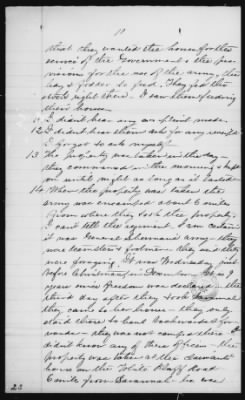 11
that they wanted the horses for the
service of the Government & the pro
visions for the use of the army, the
hay & fodder to feed. They fed the
stock right there. I saw them feeding
their horses.
11 I didn't hear any complaint made.
12 I didn't hear them ask for any receipt
I forgot to ask myself
13 The property was taken in the day
they commenced in the morning & kept
on until night as long as it lasted
14 When the property was taken the
army was encamped about 2 miles
from where they took the property.
I can't tell the regiment. I am certain
it was General Sherman's army. they
were travelers & footmen. they said they
were foraging. It was Wednesday just
before Christmas in December
years since Freedom was declared. the
third day after they took Savannah
they came to her house. they only
staid there to hand backwards & for
wards. they was not camped there. I
didn't know any of there officers. the
property was taken at the claimant
house on the White Bluff Road
6 mile from Savannah. he was
23